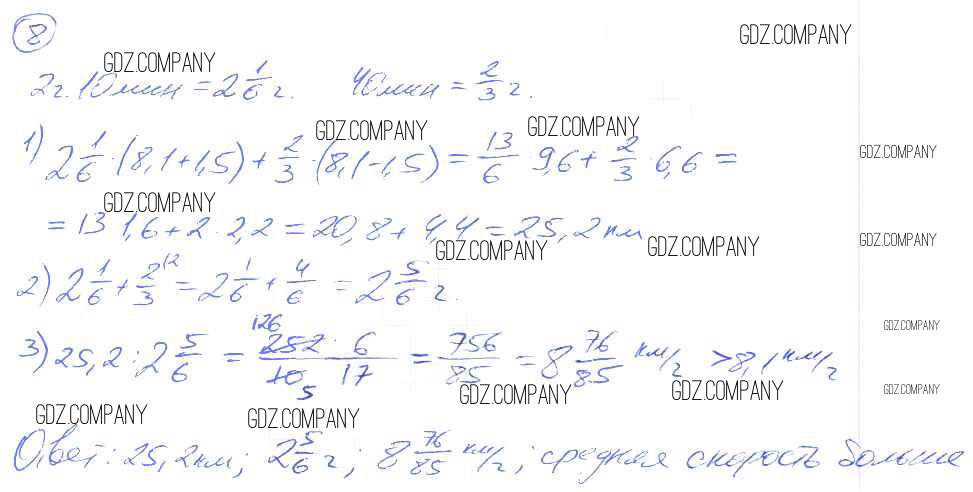 8
GDZ.COMPANY
GDZ.COMPANY
2ч. 10 мин = 2 1/6 ч. 40 мин = 2/3 ч.
GDZ.COMPANY GDZ.COMPANY
1) 2 1/6 · (8,1 + 1,5) + 2/3 · (8,1 - 1,5) = 13/6 · 9,6 + 2/3 · 6,6 =
GDZ.COMPANY
GDZ.COMPANY
= 13 1,6 + 2 · 2,2 = 20,8 + 4,4 = 25,2 км
GDZ.COMPANY GDZ.COMPANY GDZ.COMPANY
2) 2 1/6 + 2/3 (2 = 2 1/6 + 4/6 = 2 5/6 ч.
GDZ.COMPANY
3) 25,2 : 2 5/6 = 126 252 · 6 / 10 5 17 = 756/85 = 8 76/85 км/ч > 8,1 км/ч
GDZ.COMPANY GDZ.COMPANY GDZ.COMPANY
GDZ.COMPANY GDZ.COMPANY
Ответ: 25,2 км; 2 5/6 ч; 8 76/85 км/ч; средняя скорость больше